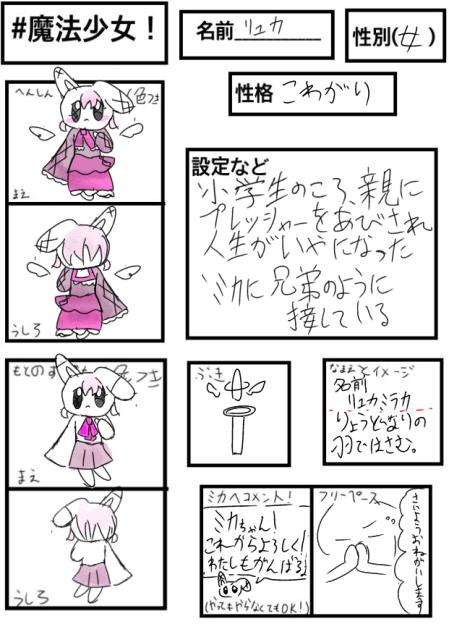 #魔法少女！
名前 リュカ
性別(女)
性格 こわがり
へんしん
色つき
まえ
うしろ
設定など
小学生のころ、親に
プレッシャーをあびされ
人生がいやになった
ミカに兄弟のように
接している
もとのす
色つき
まえ
うしろ
ぶき
なまえとイメージ
名前
リュカミラカ
りょうどなりの
羽ではさむ。
ミカへコメント！
ミカちゃん！
これからよろしく！
わたしもがんばる
(やってもやらなくてもOK！)
フリーペース
さいようおねがいします